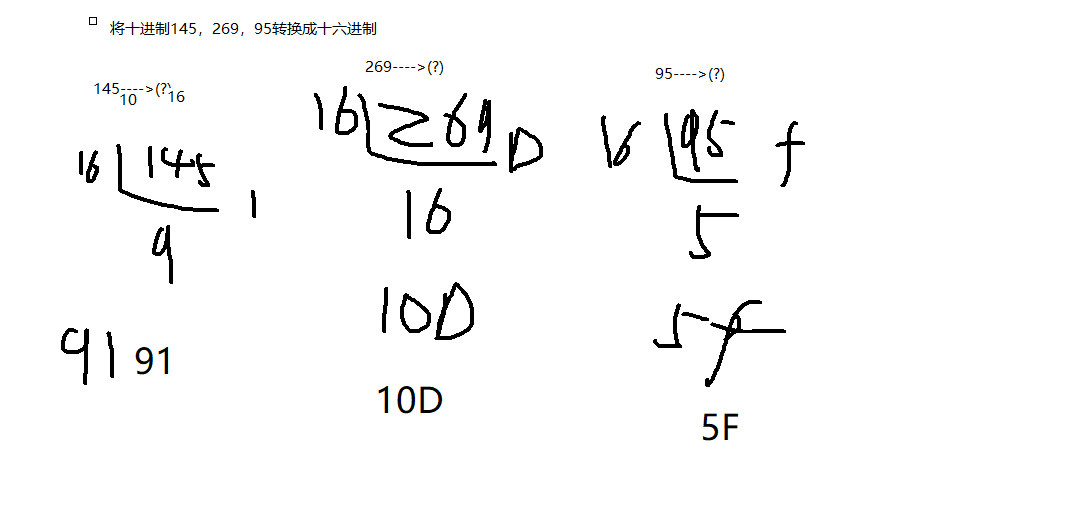 将十进制145，269，95转换成十六进制
145---->(?)
10 16
269---->(?)
95---->(?)
16 145 1
9
91 91
16 269 D
16
10D
10D
16 95 f
5
5f
5F